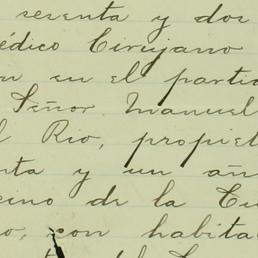 sesenta y dos
édico Cirujano
en el partid
Señor Manuel
l Rio, propiet
nta y un añ
cino de la Cu
o, con habita